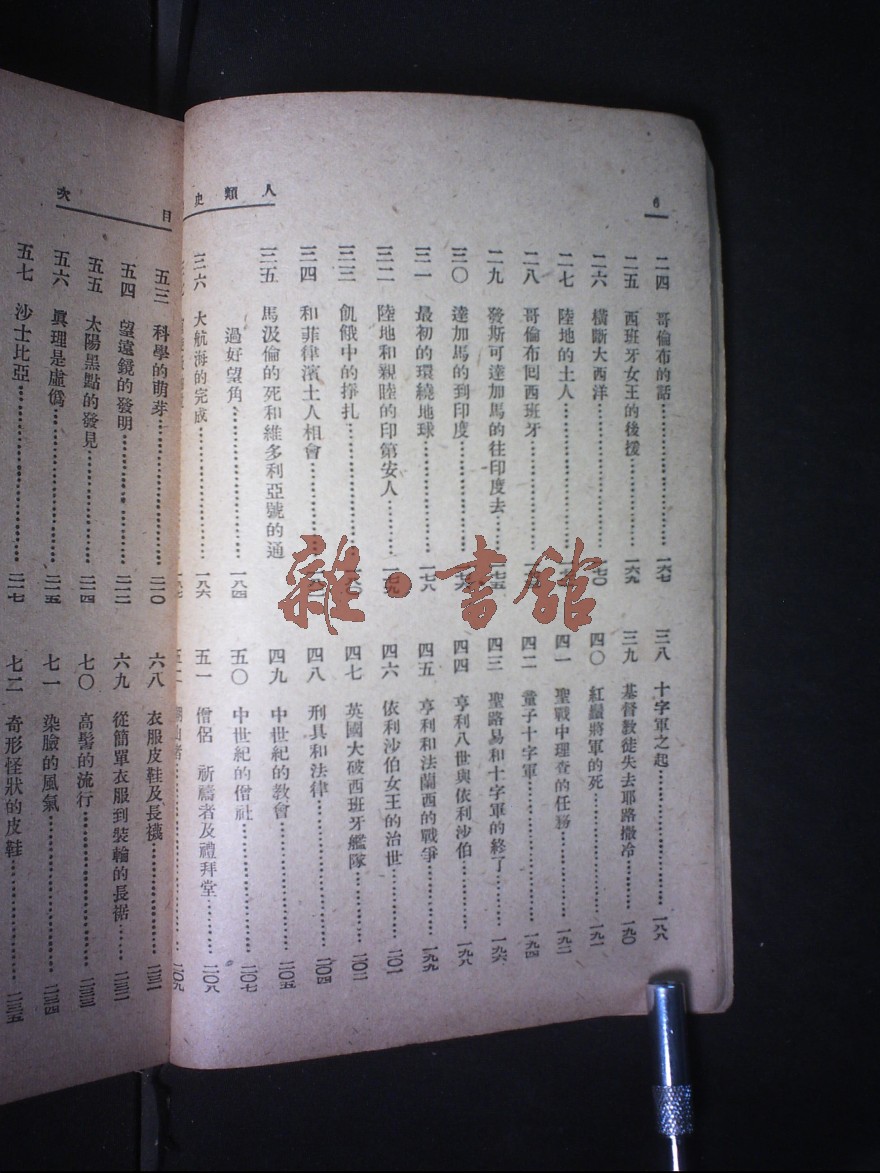 6
人類史
二四 哥倫布的話……一六七
二五 西班牙女王的後援……一六九
二六 橫斷大西洋……一七〇
二七 陸地的土人……
二八 哥倫布囘西班牙……
二九 發斯可達加馬的往印度去……一七五
三〇 達加馬的到印度……一七六
三一 最初的環繞地球……一七八
三二 陸地和親睦的印第安人……一七九
三三 飢餓中的掙扎……一八〇
三四 和菲律濱土人相會……
三五 馬汲倫的死和維多利亞號的通
過好望角……一八四
三六 大航海的完成……一八六
一八七
三八 十字軍之起……一八八
三九 基督教徒失去耶路撒冷……一九〇
四〇 紅鬍將軍的死……一九一
四一 聖戰中理查的任務……一九二
四二 童子十字軍……一九四
四三 聖路易和十字軍的終了……一九六
四四 亨利八世與依利沙伯……一九八
四五 亨利和法蘭西的戰爭……一九九
四六 依利沙伯女王的治世……二〇一
四七 英國大破西班牙艦隊……二〇二
四八 刑具和法律……二〇四
四九 中世紀的教會……二〇五
五〇 中世紀的僧社……二〇七
五一 僧侶 祈禱者及禮拜堂……二〇八
五二……二〇九
目次
五三 科學的萌芽……二一〇
五四 望遠鏡的發明……二一二
五五 太陽黑點的發見……二一四
五六 眞理是虛僞……二一五
五七 沙士比亞……二一七
六八 衣服皮鞋及長襪……二三一
六九 從簡單衣服到裝輪的長裾……二三二
七〇 高髻的流行……二三三
七一 染臉的風氣……二三四
七二 奇形怪狀的皮鞋……二三五
雜·書館